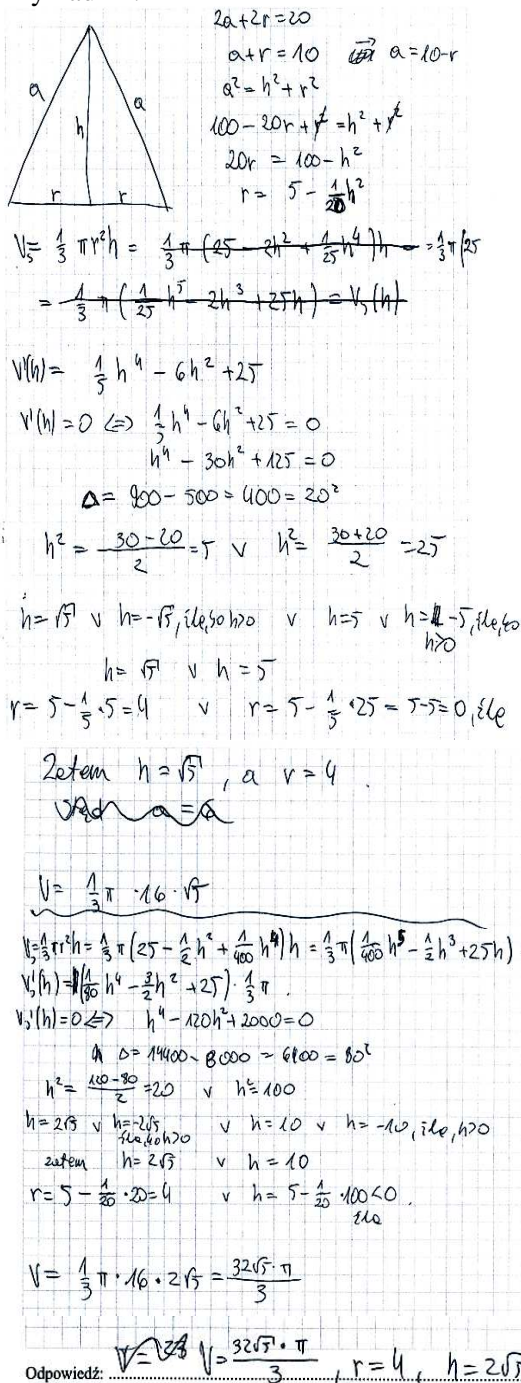 2a+2r=20
a+r=10 ⇒ a=10-r
a
a
h
r
r
a²=h²+r²
100-20r+r²=h²+r²
20r = 100-h²
r = 5 - 1/20 h²
Vs = 1/3 πr²h = 1/3 π (25 - 2h² + 1/25 h⁴)h = = 1/3 π (25
= 1/3 π (1/25 h⁵ - 2h³ + 25h) = Vs(h)
V'(h) = 1/5 h⁴ - 6h² + 25
V'(h)=0 ⇔ 1/5 h⁴ - 6h² + 25 = 0
h⁴ - 30h² + 125 = 0
Δ = 900 - 500 = 400 = 20²
h² = (30-20)/2 = 5 ∨ h² = (30+20)/2 = 25
h = √5 ∨ h = -√5, źle, bo h>0 ∨ h=5 ∨ h = -5, źle, bo h>0
h = √5 ∨ h = 5
r = 5 - 1/5 · 5 = 4 ∨ r = 5 - 1/5 · 25 = 5-5=0, źle
Zatem h = √5, a r = 4.
a = 6
V = 1/3 π · 16 · √5
Vs = 1/3 πr²h = 1/3 π (25 - 1/2 h² + 1/400 h⁴) h = 1/3 π (1/400 h⁵ - 1/2 h³ + 25h)
Vs'(h) = (1/80 h⁴ - 3/2 h² + 25) · 1/3 π.
Vs'(h)=0 ⇔ h⁴ - 120h² + 2000 = 0
Δ = 14400 - 8000 = 6400 = 80²
h² = (120-80)/2 = 20 ∨ h² = 100
h = 2√5 ∨ h = -2√5 źle, bo h>0 ∨ h = 10 ∨ h = -10, źle, h>0
zatem h = 2√5 ∨ h = 10
r = 5 - 1/20 · 20 = 4 ∨ h = 5 - 1/20 · 100 < 0. źle
V = 1/3 π · 16 · 2√5 = 32√5 · π / 3
Odpowiedź: V = 32√5 · π / 3, r = 4, h = 2√5